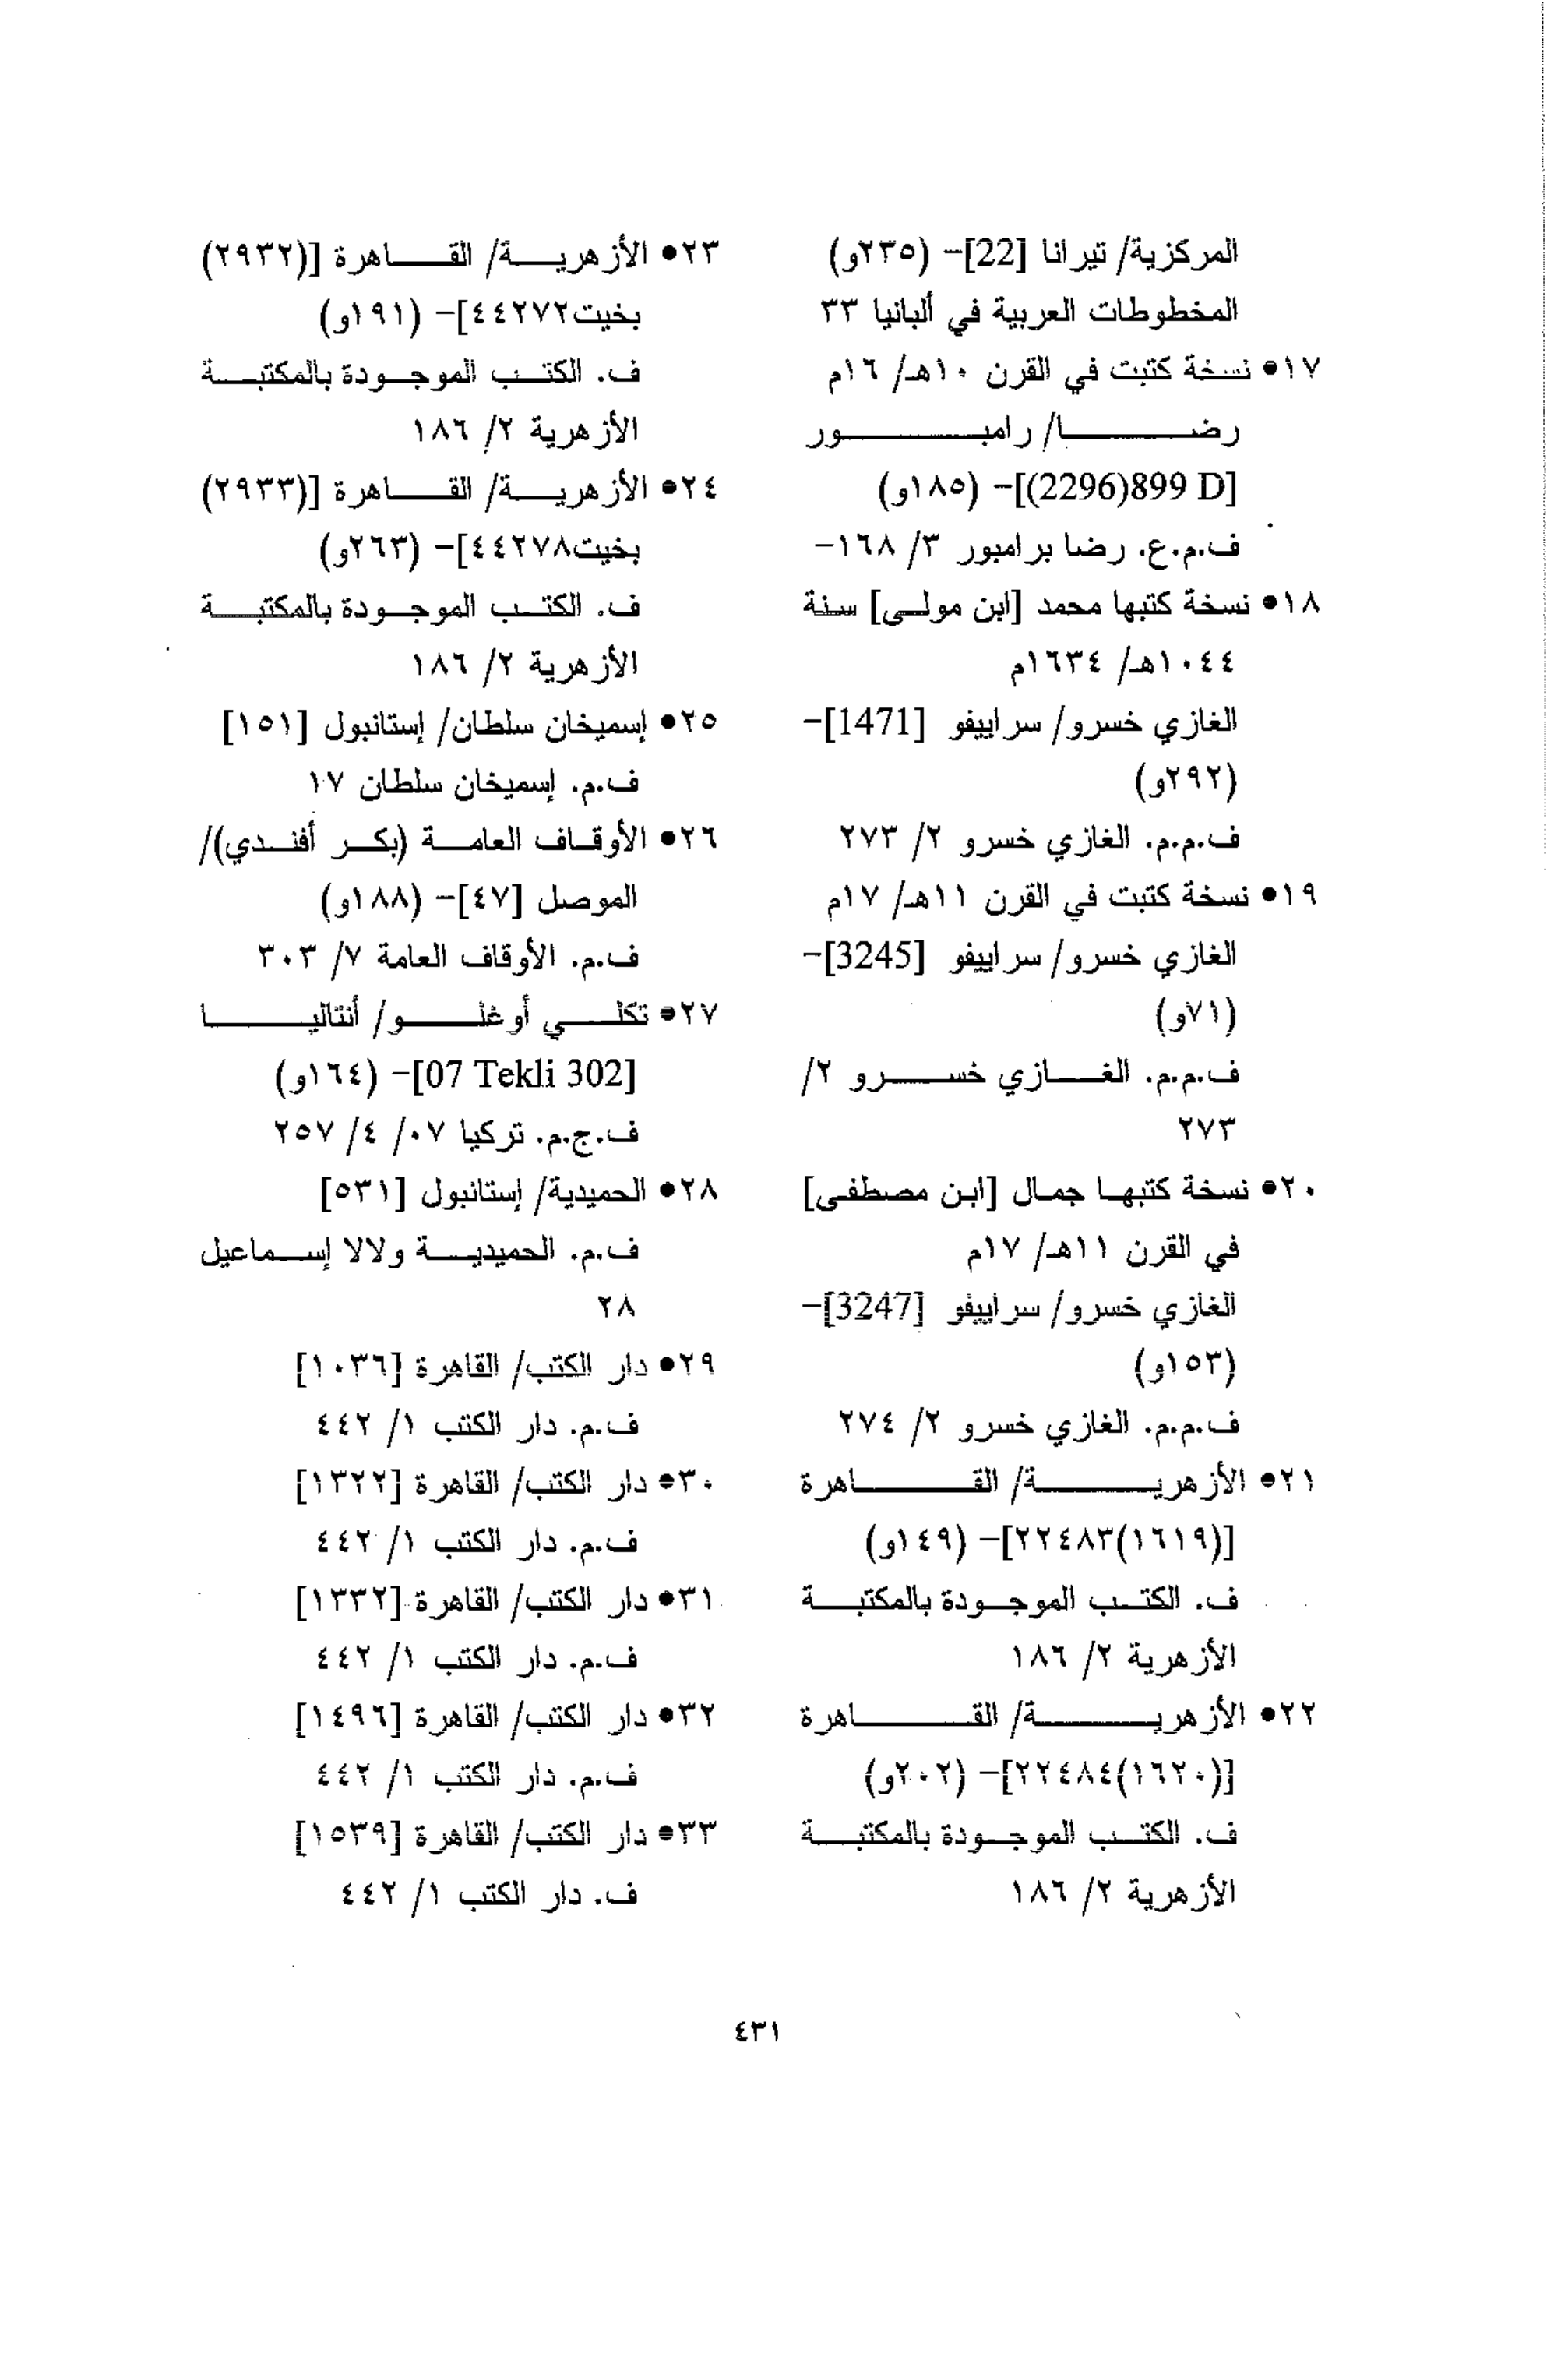 المركزية/ تيرانا [22]- (٢٣٥و)
المخطوطات العربية في ألبانيا ٣٣
١٧• نسخة كتبت في القرن ١٠هـ/ ١٦م
رضا/ رامبور
[899 D(2296)]- (١٨٥و)
ف.م.ع. رضا برامبور ٣/ ١٦٨-
١٨• نسخة كتبها محمد [ابن مولى] سنة
١٠٤٤هـ/ ١٦٣٤م
الغازي خسرو/ سراييفو [1471]-
(٢٩٢و)
ف.م.م. الغازي خسرو ٢/ ٢٧٣
١٩• نسخة كتبت في القرن ١١هـ/ ١٧م
الغازي خسرو/ سراييفو [3245]-
(٧١و)
ف.م.م. الغازي خسرو ٢/
٢٧٣
٢٠• نسخة كتبها جمال [ابن مصطفى]
في القرن ١١هـ/ ١٧م
الغازي خسرو/ سراييفو [3247]-
(١٥٣و)
ف.م.م. الغازي خسرو ٢/ ٢٧٤
٢١• الأزهرية/ القاهرة
[(١٦١٩)٢٢٤٨٣]- (١٤٩و)
ف. الكتب الموجودة بالمكتبة
الأزهرية ٢/ ١٨٦
٢٢• الأزهرية/ القاهرة
[(١٦٢٠)٢٢٤٨٤]- (٢٠٢و)
ف. الكتب الموجودة بالمكتبة
الأزهرية ٢/ ١٨٦
٢٣• الأزهرية/ القاهرة [(٢٩٣٢)
بخيت٤٤٢٧٢]- (١٩١و)
ف. الكتب الموجودة بالمكتبة
الأزهرية ٢/ ١٨٦
٢٤• الأزهرية/ القاهرة [(٢٩٣٣)
بخيت٤٤٢٧٨]- (٢٦٣و)
ف. الكتب الموجودة بالمكتبة
الأزهرية ٢/ ١٨٦
٢٥• إسميخان سلطان/ إستانبول [١٥١]
ف.م. إسميخان سلطان ١٧
٢٦• الأوقاف العامة (بكر أفندي)/
الموصل [٤٧]- (١٨٨و)
ف.م. الأوقاف العامة ٧/ ٣٠٣
٢٧• تكلي أوغلو/ أنتاليا
[07 Tekli 302]- (١٦٤و)
ف.ج.م. تركيا ٠٧/ ٤/ ٢٥٧
٢٨• الحميدية/ إستانبول [٥٣١]
ف.م. الحميدية ولالا إسماعيل
٢٨
٢٩• دار الكتب/ القاهرة [١٠٣٦]
ف.م. دار الكتب ١/ ٤٤٢
٣٠• دار الكتب/ القاهرة [١٣٢٢]
ف.م. دار الكتب ١/ ٤٤٢
٣١• دار الكتب/ القاهرة [١٣٣٢]
ف.م. دار الكتب ١/ ٤٤٢
٣٢• دار الكتب/ القاهرة [١٤٩٦]
ف.م. دار الكتب ١/ ٤٤٢
٣٣• دار الكتب/ القاهرة [١٥٣٩]
ف. دار الكتب ١/ ٤٤٢
٤٣١